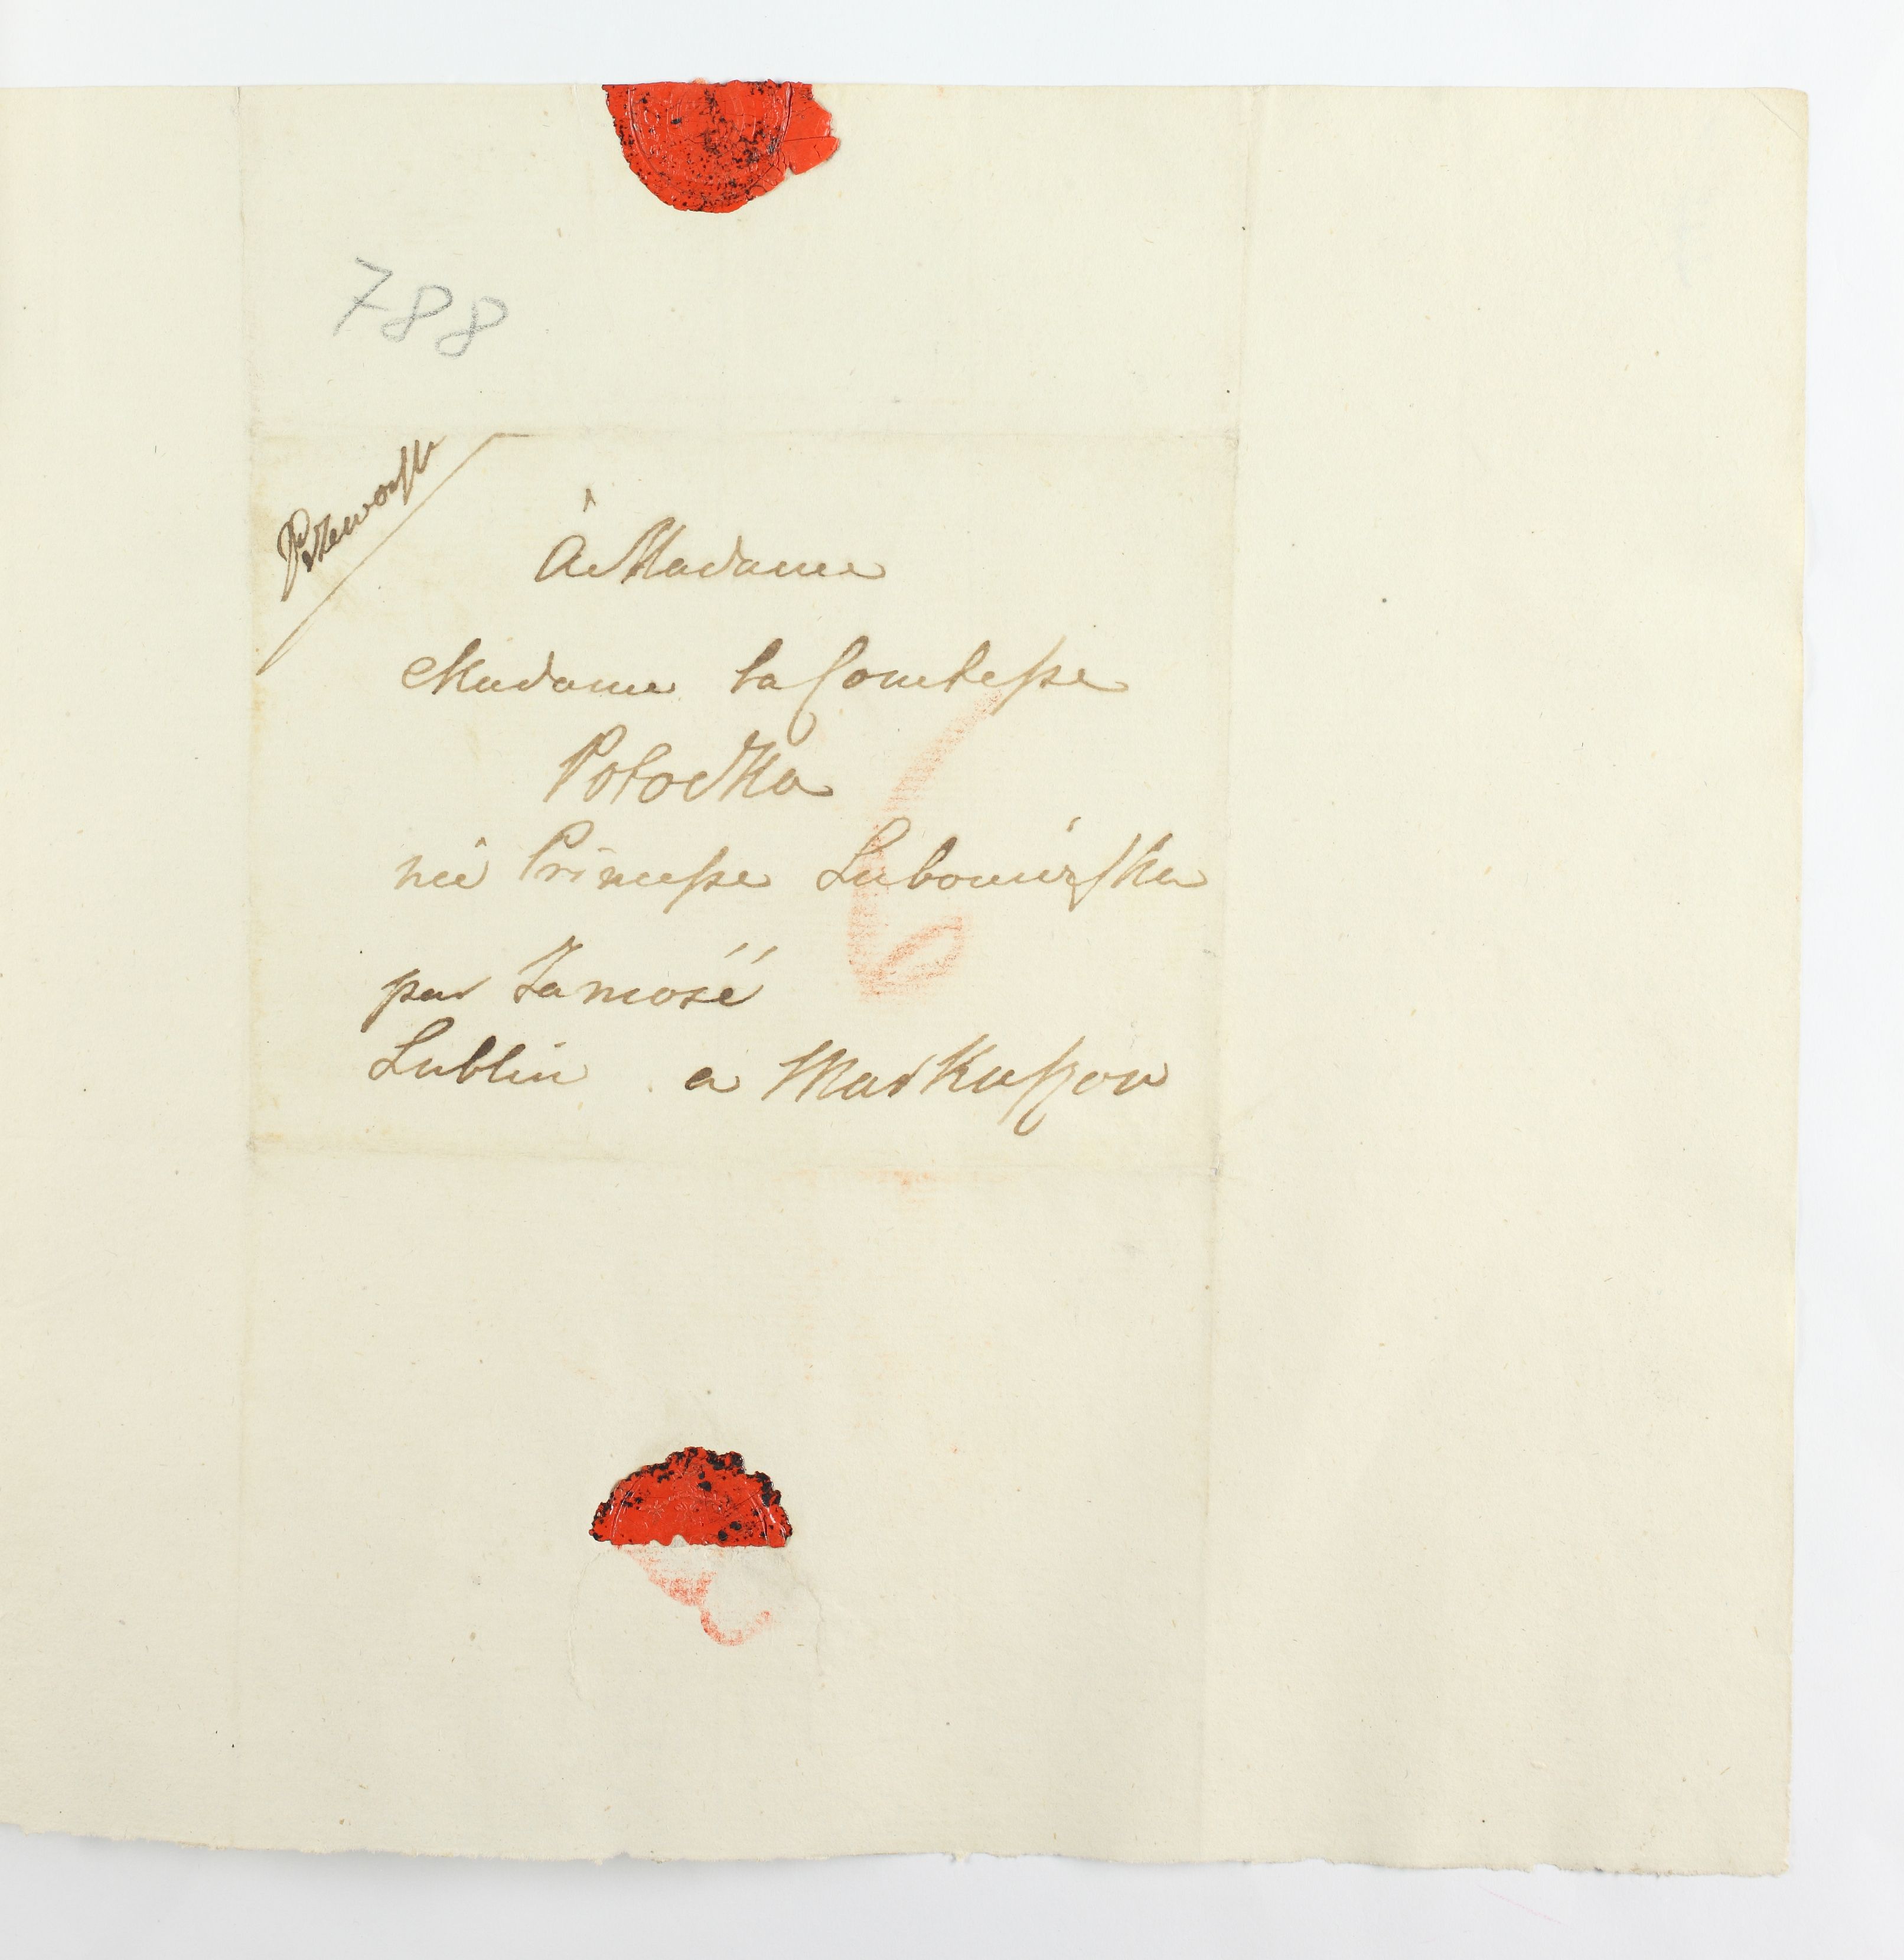 788
Przeworsk
À Madame
Madame la Comtesse
Potocka
née Princesse Lubomirska
par Zamość
Lublin a Markuszow
6